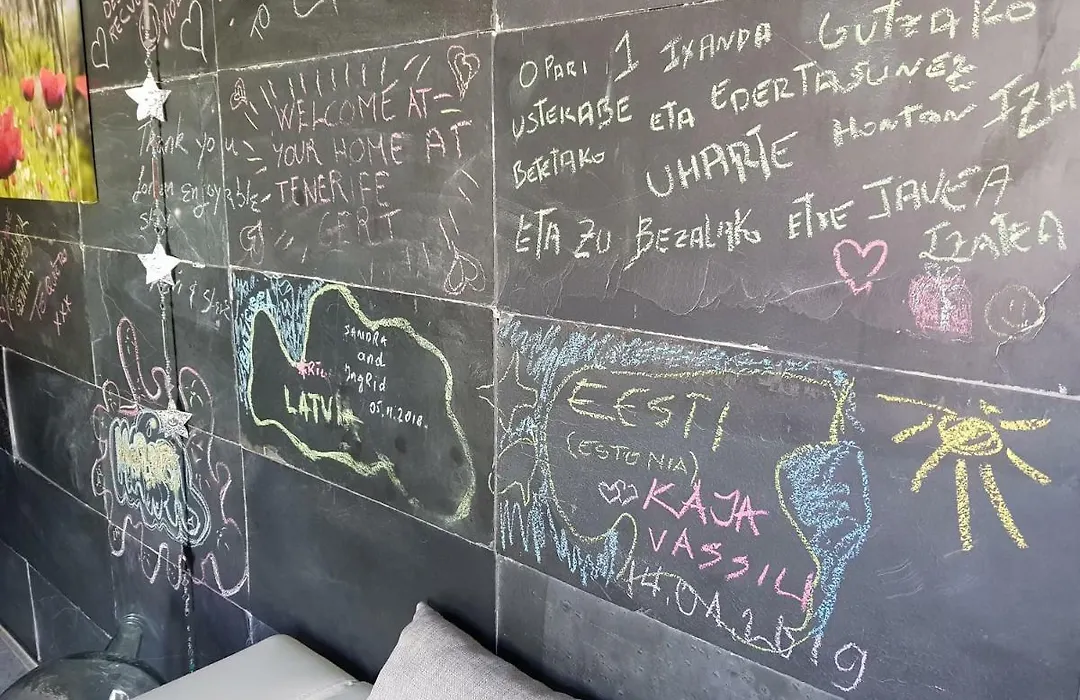 WELCOME AT
YOUR HOME AT
TENERIFE
GERT
Thank you
for an enjoyable
OPARI 1 IXANDA GUTZAKO
USTEKABE ETA EDERTASUNEZ
BETETAKO UHARTE HONTAN IZA
ETA ZU BEZALAKO ETXE JABEA
IZATEA
SANDRA
and
Ingrid
05.11.2018.
LATVIA
EESTI
(ESTONIA)
KAJA
VASSILI
14.01.2019
xxx